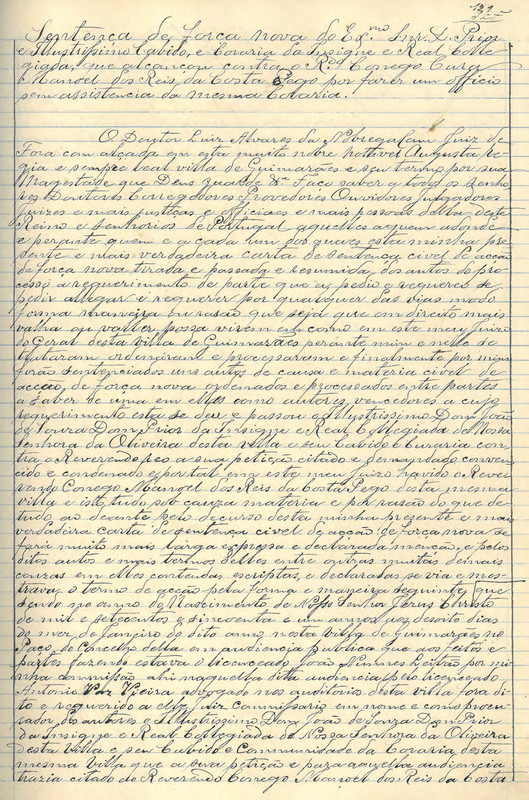 191
Sentença de força nova do Ex.mo Snr. D. Prior
e Illustrissimo Cabido, e Coraria da Insigne e Real Colle-
giada, que alcançou contra o R.do Conego Cura
Manoel dos Reis da Costa Pego por fazer um officio
sem assistencia da mesma Coraria.
O Doutor Luiz Alvares da Nobrega Cam Juiz de
Fora com alçada em esta muito nobre notavel Augusta re-
gia e sempre leal villa de Guimarães e seu termo por sua
Magestade que Deus guarde &.a Faço saber a todos os senho-
res Doutores Corregedores Provedores Ouvidores Julgadores
Juizes e mais justiças e officiaes e mais pessoas deste
Reino e senhorios de Portugal aquelles aquem aonde
e perante quem e a cada um dos quaes esta minha pre-
sente e mais verdadeira carta de sentença civel de acção
de força nova tirada e passada e resumida dos autos do pro-
cesso a requerimento de parte que a pediu e requereu se
pedir allegar e requerer por qualquer das vias modo
forma maneira ou rasão que seja que em direito mais
valha ou valler possa virem em como em este meu Juizo
do Geral desta villa de Guimarães perante mim e nelle se
trataram ordenaram e processaram e finalmente por mim
forão sentenciados uns autos de causa e materia civel de
acção de força nova ordenados e processados entre partes
a saber de uma em elles como autores, vencedores a cujo
requerimento esta se deu e passou o Illustrissimo Dom João
de Souza Dom Prior da Insigne e Real Collegiada de Nossa
Senhora da Oliveira desta villa e seu Cabido e Curaria con-
tra o Reverendo reo a sua petição citado e demandado conven-
cido e condemnado e por tal em este meu juizo havido o Reve-
rendo Conego Manoel dos Reis da Costa Pego desta mesma
villa e isto tudo sob cauza materia e por rasão do que de
tudo ao deante pelo decurso desta minha prezente e mais
verdadeira carta de sentença civel de acção de força nova se
fará muito mais larga expressa e declarada menção, e pelos
ditos autos e mais termos delles entre outras muitas demais
couzas em elles contendas escriptas, e declaradas se via e mos-
trava o termo de acção pela forma e maneira seguinte que
sendo no anno do Nascimento de Nosso Senhor Jesus Christo
de mil e setecentos e sincoenta e um annos aos desoito dias
do mez de Janeiro do dito anno nesta villa de Guimarães no
Paço do Concelho della em audiencia publica que aos feitos e
partes fazendo estava o licenceado João Nunnes Leitão por mi-
nha commissão ahi naquella dita audiencia pelo licenceado
Antonio Vaz Vieira advogado nos auditorios desta villa fora di-
to e requerido a elle Juiz Commissario em nome e como procu-
rador dos autores o Illustrissimo Dom João de Souza Dom Prior
da Insigne e Real Collegiada de Nossa Senhora da Oliveira
desta Villa e seu Cabido e Communidade da Coraria desta
mesma Villa que a sua petição e para aquella audiencia
trazia citado o Reverendo Conego Manoel dos Reis da Costa